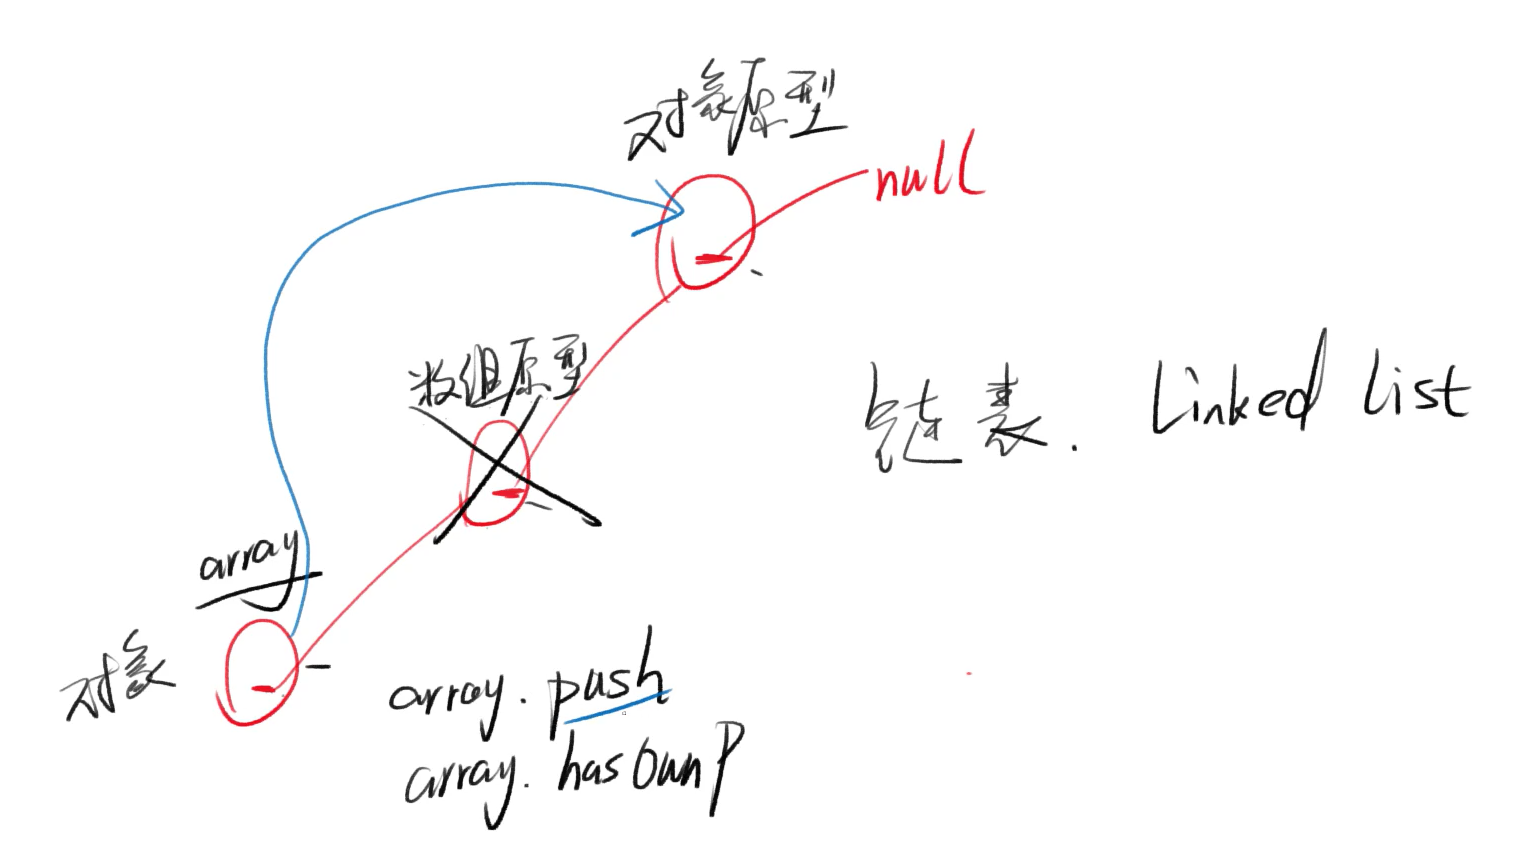 对象原型
null
数组原型
链表. Linked list
array
对象
array.push
array.hasOwnP